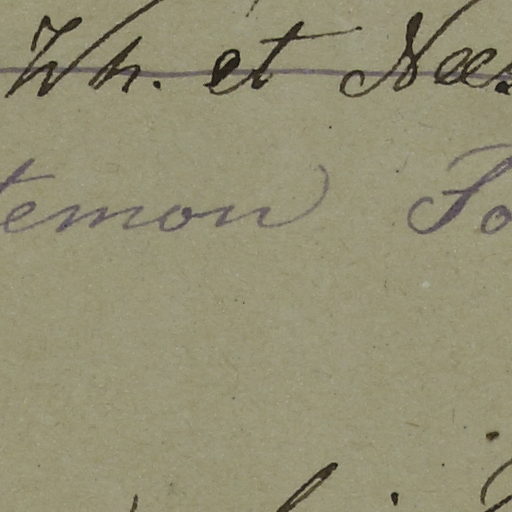 Wh. et Nees
temon So